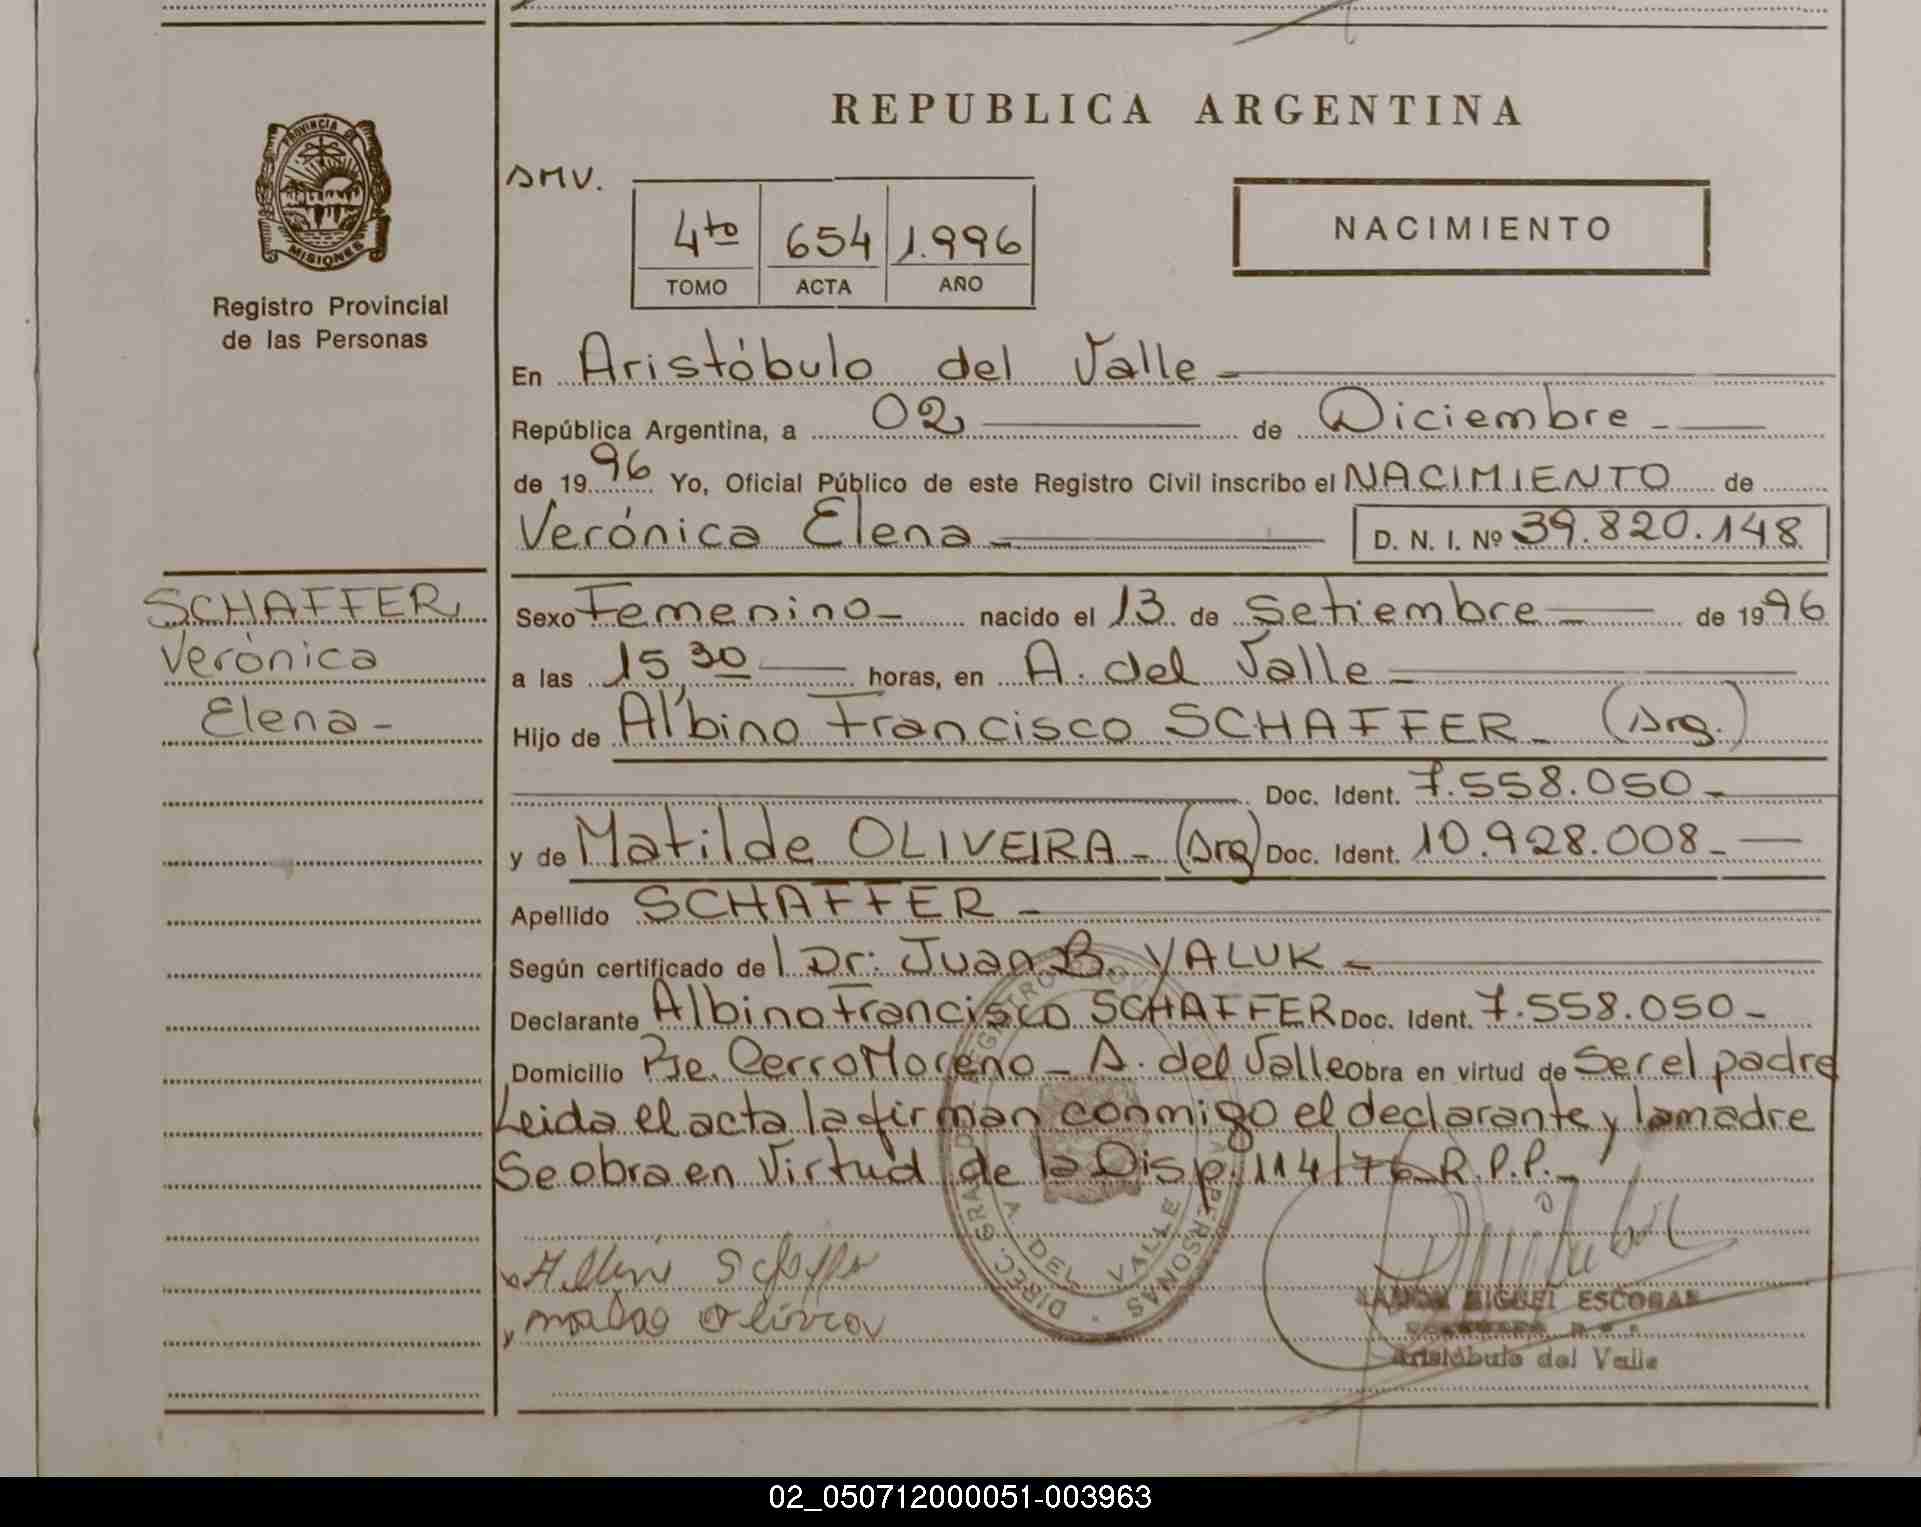 PROVINCIA DE
MISIONES
Registro Provincial
de las Personas
SCHAFFER
Verónica
Elena-
REPUBLICA ARGENTINA
4to 654 1.996
TOMO ACTA AÑO
NACIMIENTO
En Aristóbulo del Valle -
República Argentina, a 02 de Diciembre -
de 1996 Yo, Oficial Público de este Registro Civil inscribo el NACIMIENTO de
Verónica Elena - D. N. I. Nº 39.820.148
Sexo Femenino - nacido el 13 de Setiembre de 1996
a las 15,30 horas, en A. del Valle -
Hijo de Albino Francisco SCHAFFER - (Arg.)
Doc. Ident. 7.558.050 -
y de Matilde OLIVEIRA - (Arg) Doc. Ident. 10.928.008 -
Apellido SCHAFFER -
Según certificado del Dr: Juan B. YALUK -
Declarante Albino Francisco SCHAFFER Doc. Ident. 7.558.050 -
Domicilio Pje. Cerro Moreno - A. del Valle obra en virtud de Ser el padre
Leida el acta la firman conmigo el declarante y la madre
Se obra en Virtud de la Disp. 114/76 R.P.P. -
A. DEL VALLE
MIGUEL ESCOBAR
Aristóbulo del Valle
02_050712000051-003963